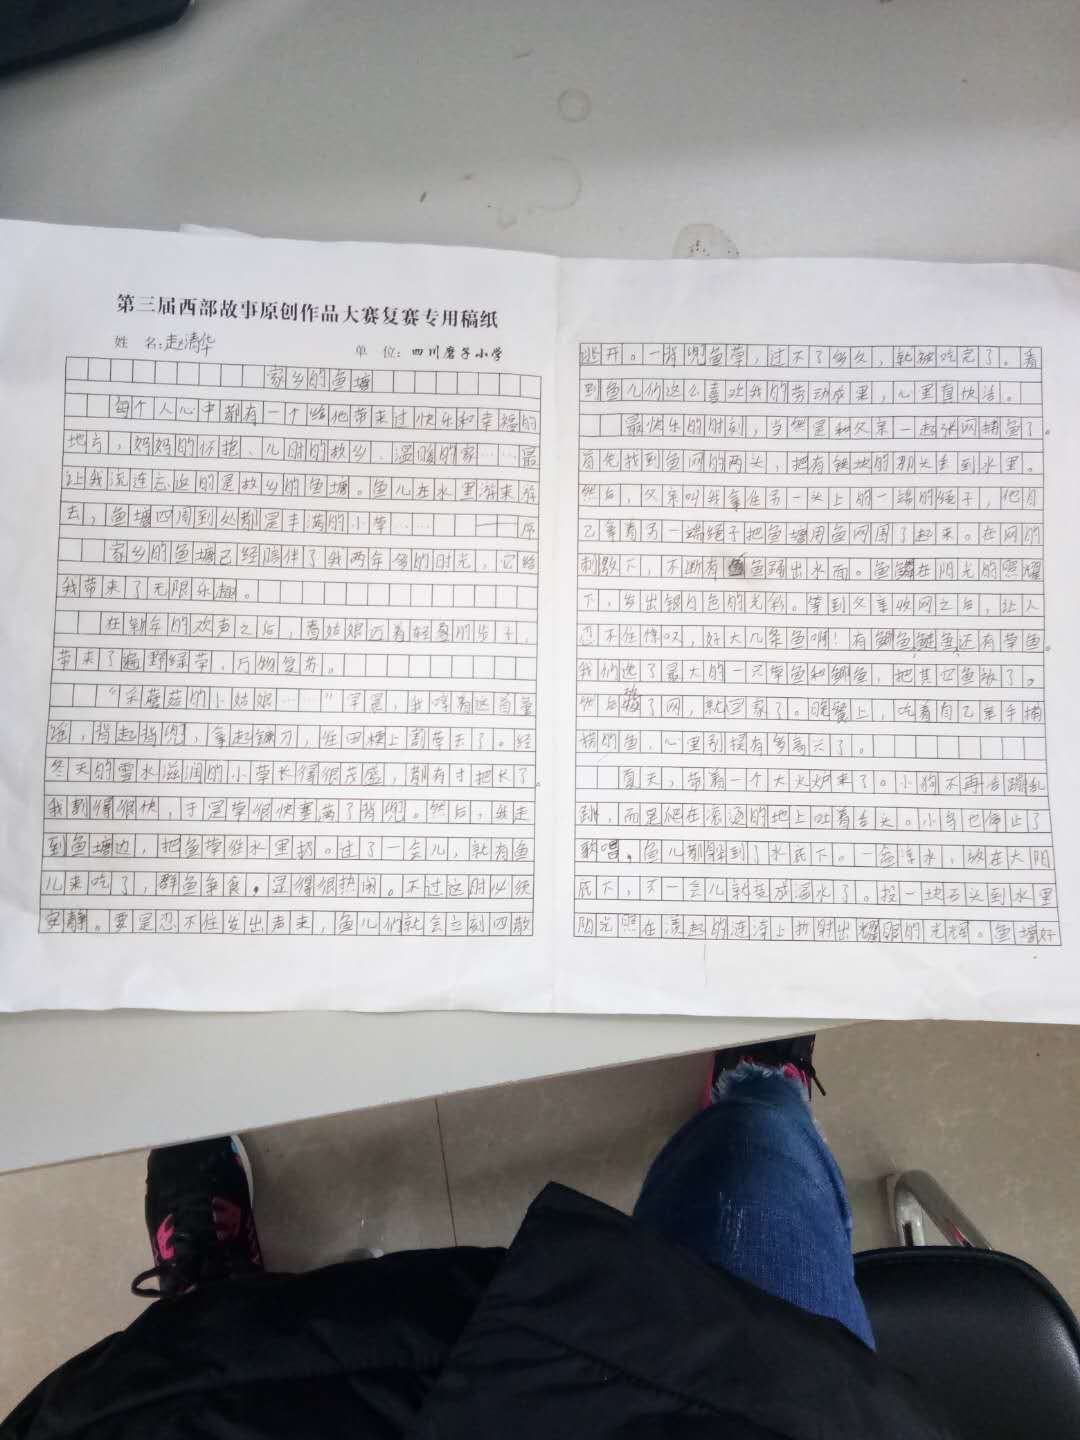 第三届西部故事原创作品大赛复赛专用稿纸
姓 名：赵清华 单 位：四川磨子小学
家乡的鱼塘
每个人心中都有一个给他带来过快乐和幸福的
地方，妈妈的怀抱、儿时的故乡、温暖的家……最
让我流连忘返的是故乡的鱼塘。鱼儿在水里游来游
去，鱼塘四周到处都是丰满的小草…… 序
家乡的鱼塘已经陪伴了我两年多的时光，它给
我带来了无限乐趣。
在新年的欢声之后，春姑娘迈着轻盈的步子，
带来了遍野绿草，万物复苏。
“采蘑菇的小姑娘……”早晨，我哼着这首童
谣，背起背兜，拿起镰刀，往田埂上割草去了。经
冬天的雪水滋润的小草长得很茂盛，都有寸把长了。
我割得很快，于是草很快塞满了背兜。然后，我走
到鱼塘边，把鱼草往水里扔。过了一会儿，就有鱼
儿来吃了，群鱼争食，显得很热闹。不过这时必须
安静。要是忍不住发出声来，鱼儿们就会立刻四散
逃开。一背兜鱼草，过不了多久，就被吃完了。看
到鱼儿们这么喜欢我的劳动成果，心里直快活。
最快乐的时刻，当然是和父亲一起张网捕鱼了。
首先找到鱼网的两头，把有铁块的那头丢到水里。
然后，父亲叫我拿住另一头上的一端的绳子，他自
己拿着另一端绳子把鱼塘用鱼网围了起来。在网的
刺激下，不断有鱼踊出水面。鱼鳞在阳光的照耀
下，发出银白色的光彩。等到父亲收网之后，让人
忍不住惊叹，好大几条鱼啊！有鲫鱼，鲢鱼，还有草鱼。
我们选了最大的一只草鱼和鲫鱼，把其它鱼放了。
然后收了网，就回家了。晚餐上，吃着自己亲手捕
捞的鱼，心里别提有多高兴了。
夏天，带着一个大火炉来了。小狗不再活蹦乱
跳，而是爬在滚烫的地上吐着舌头。小鸟也停止了
歌唱，鱼儿都躲到了水底下。一盆凉水，放在大阳
底下，不一会儿就变成温水了。投一块石头到水里
阳光照在溅起的涟漪上折射出耀眼的光辉。鱼塘好